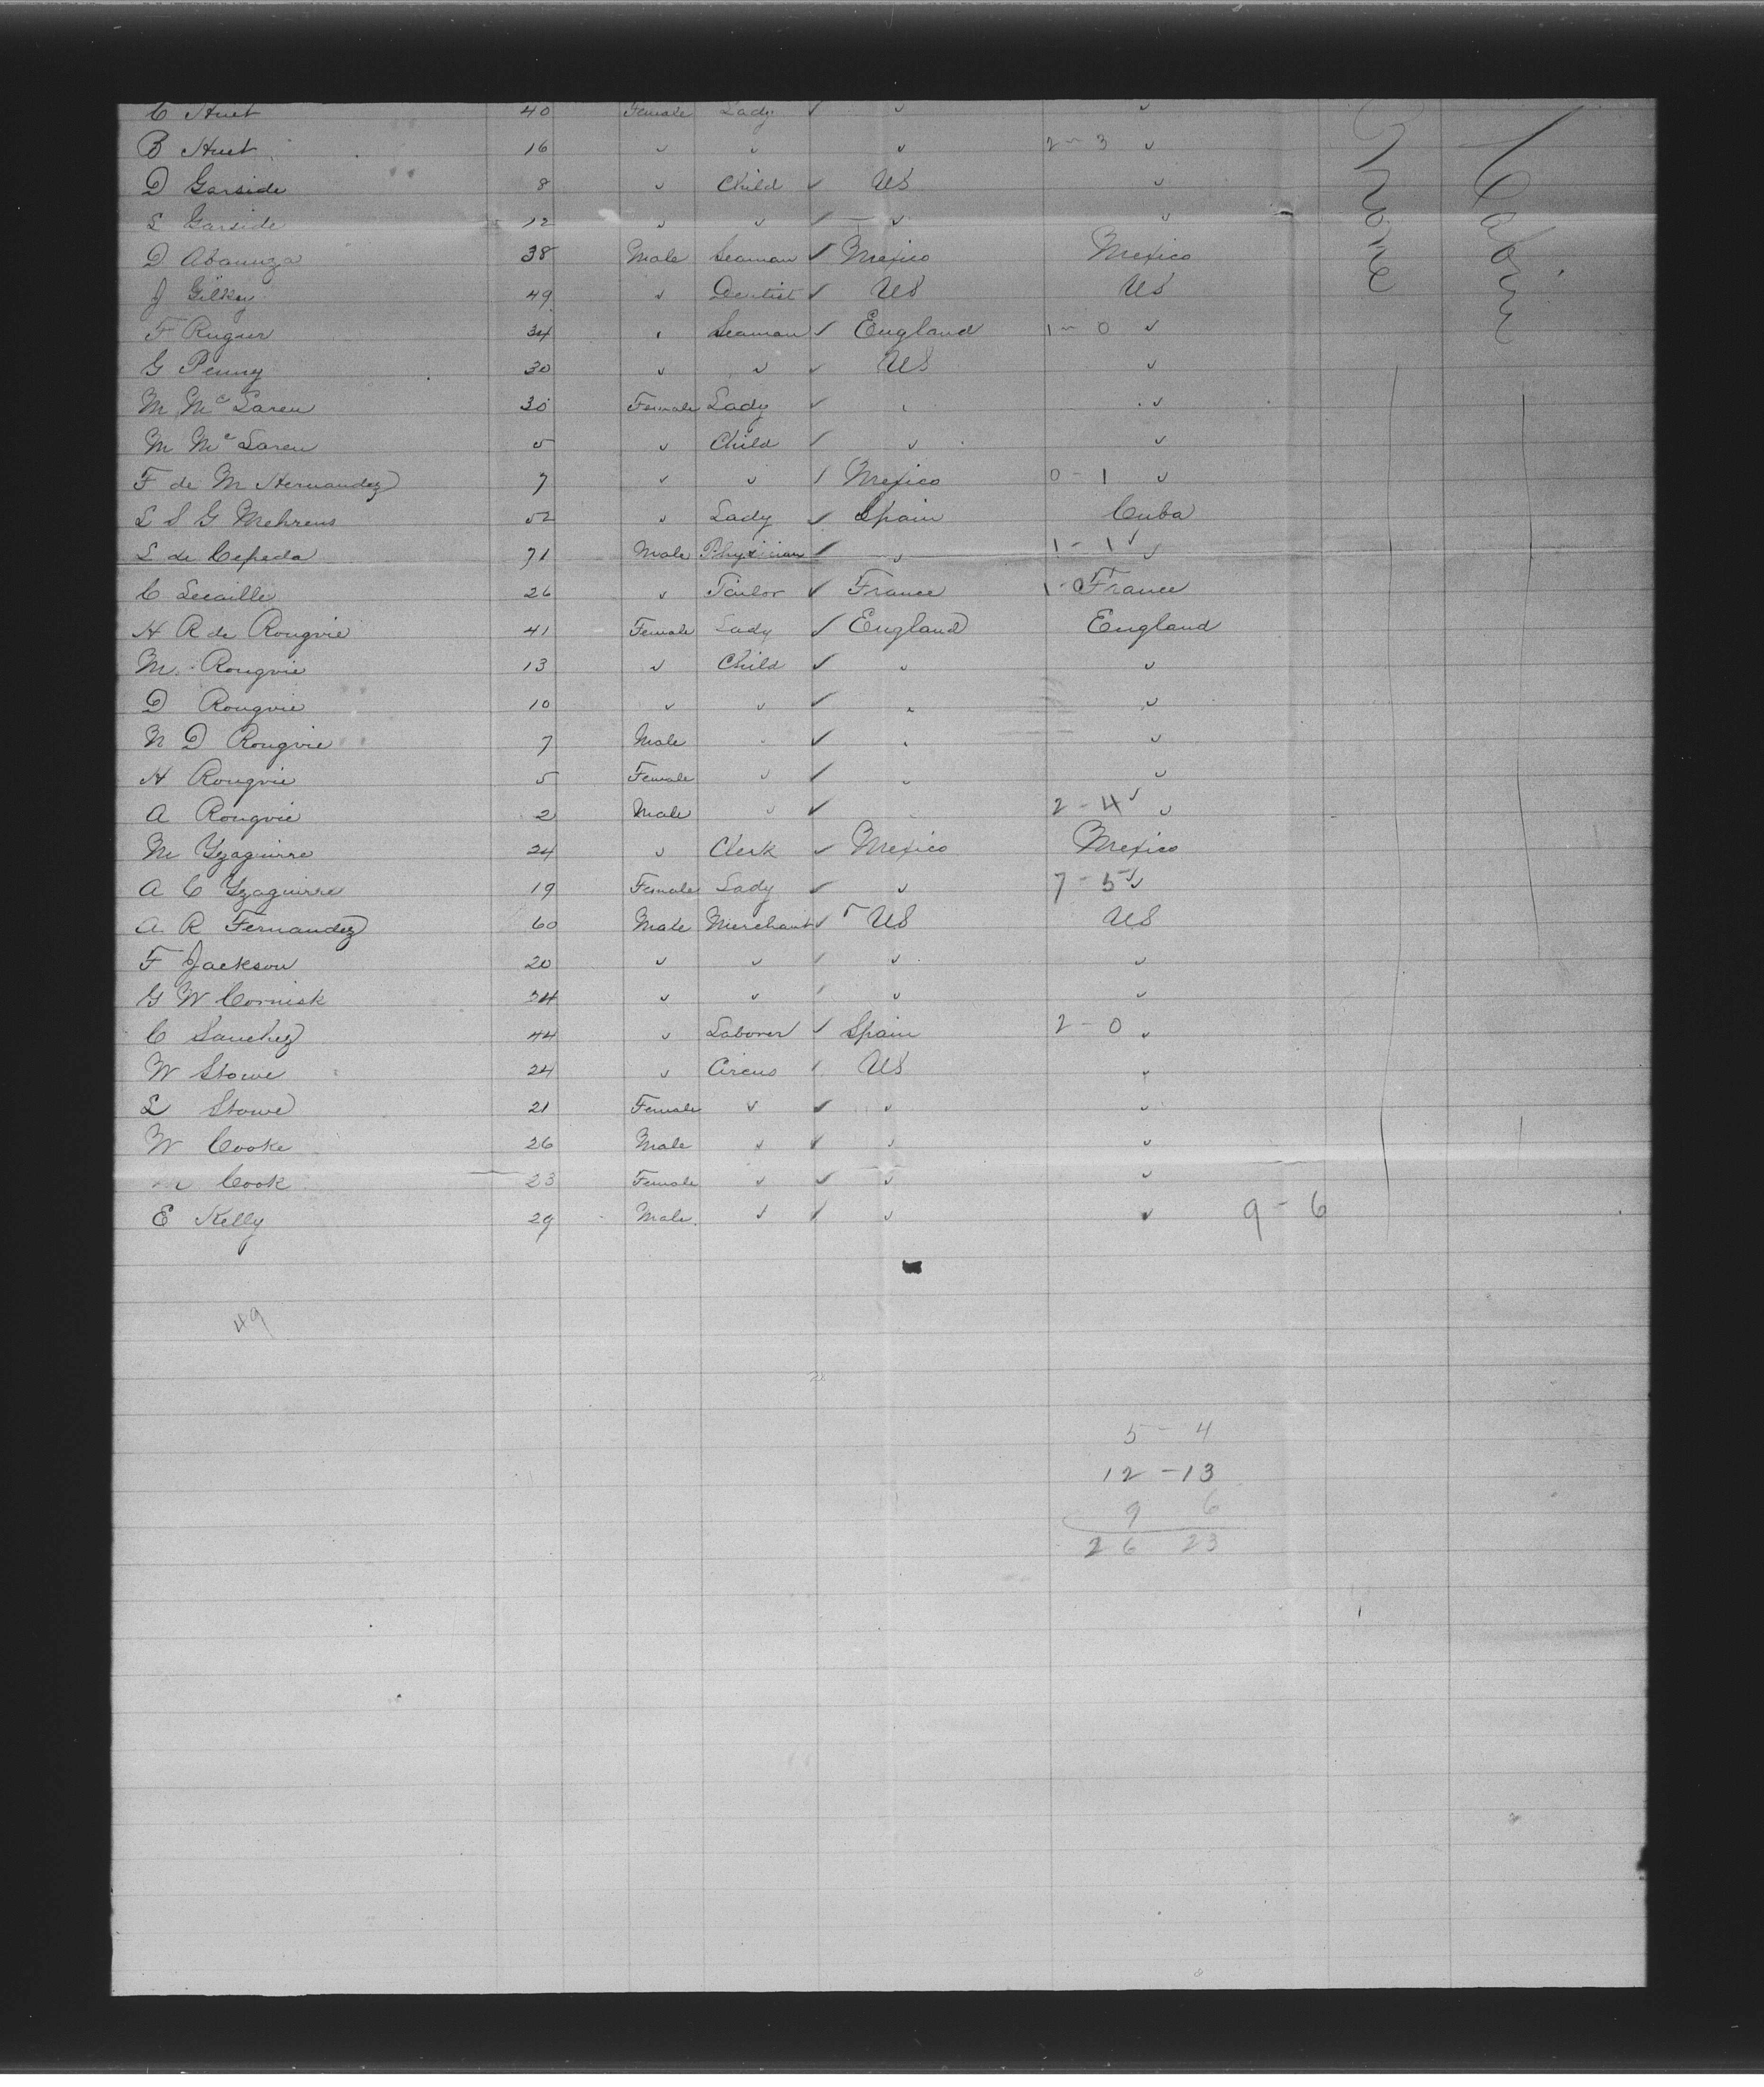 C Huet 40 Female Lady ✓ ✓ ✓
B Huet 16 ✓ ✓ ✓ 2 - 3 ✓
D Garside 8 ✓ Child ✓ US ✓
L Garside 12 ✓ ✓ ✓ ✓ ✓
D Abaunza 38 Male Seaman ✓ Mexico Mexico
J Gilkey 49 ✓ Dentist ✓ US US
F Rugur 34 " Seaman ✓ England 1 - 0 ✓
G Penny 30 ✓ ✓ ✓ US ✓
M McLaren 30 Female Lady ✓ " ✓
M McLaren 5 ✓ Child ✓ ✓ ✓
F de M Hernandez 7 ✓ ✓ ✓ Mexico 0 - 1 ✓
L S G Mehrens 52 ✓ Lady ✓ Spain Cuba
L de Cepeda 71 Male Physician ✓ ✓ 1 - 1 ✓ ✓
C Lecaille 26 ✓ Tailor ✓ France 1 - 0 France
H R de Rougvie 41 Female Lady ✓ England England
M. Rougvie 13 ✓ Child ✓ ✓ ✓
D Rougvie 10 ✓ ✓ ✓ " ✓
N D Rougvie 7 Male " ✓ " ✓
H Rougvie 5 Female ✓ ✓ ✓ ✓
A Rougvie 2 Male ✓ ✓ 2 - 4 ✓ ✓
M Yzaguirre 24 ✓ Clerk ✓ Mexico Mexico
A C Yzaguirre 19 Female Lady ✓ ✓ 7 - 5 ✓ ✓
A R Fernandez 60 Male Merchant ✓ US US
F Jackson 20 ✓ ✓ ✓ ✓ ✓
G W Cornish 34 ✓ ✓ ✓ ✓ ✓
C Sanchez 44 ✓ Laborer ✓ Spain 2 - 0 ✓
W Stowe 24 ✓ Circus ✓ US ✓
L Stowe 21 Female ✓ ✓ ✓ ✓
W Cooke 26 Male ✓ ✓ ✓ ✓
Cook 23 Female ✓ ✓ ✓ ✓
E Kelly 29 Male. ✓ ✓ ✓ ✓ 9 - 6
49
5 - 4
12 - 13
9 6
26 23